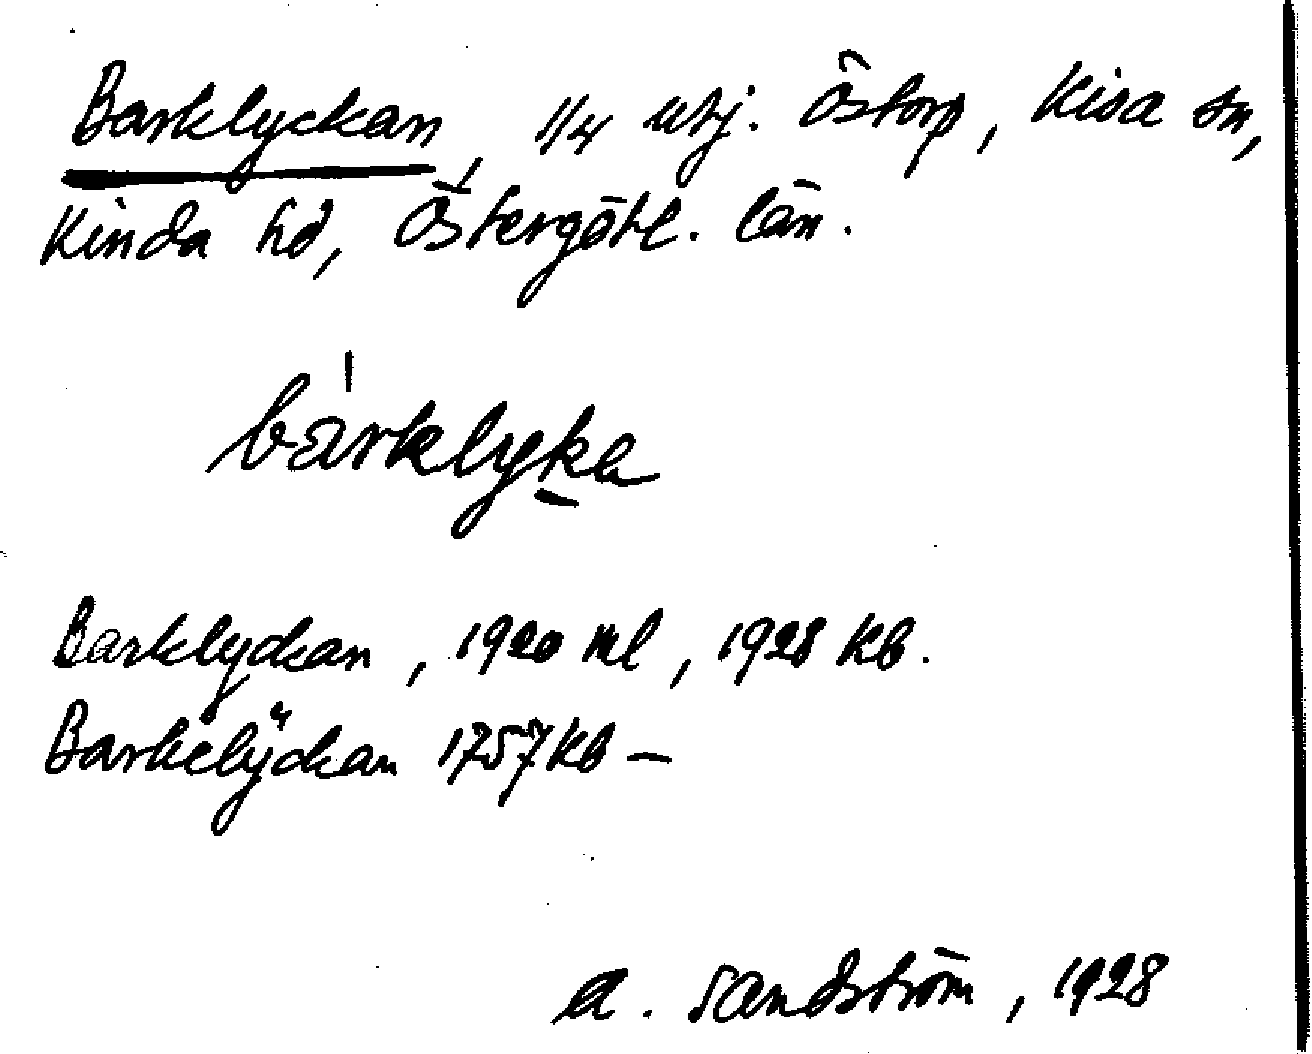 Barklyckan, 1/4 utj. Östorp, Kisa sn,
Kinda hd, Östergötl. län.
bárklyka
Barklyckan, 1920 ml, 1928 Kb.
Barkelÿckan 1757 Kb —
A. Sandström, 1928